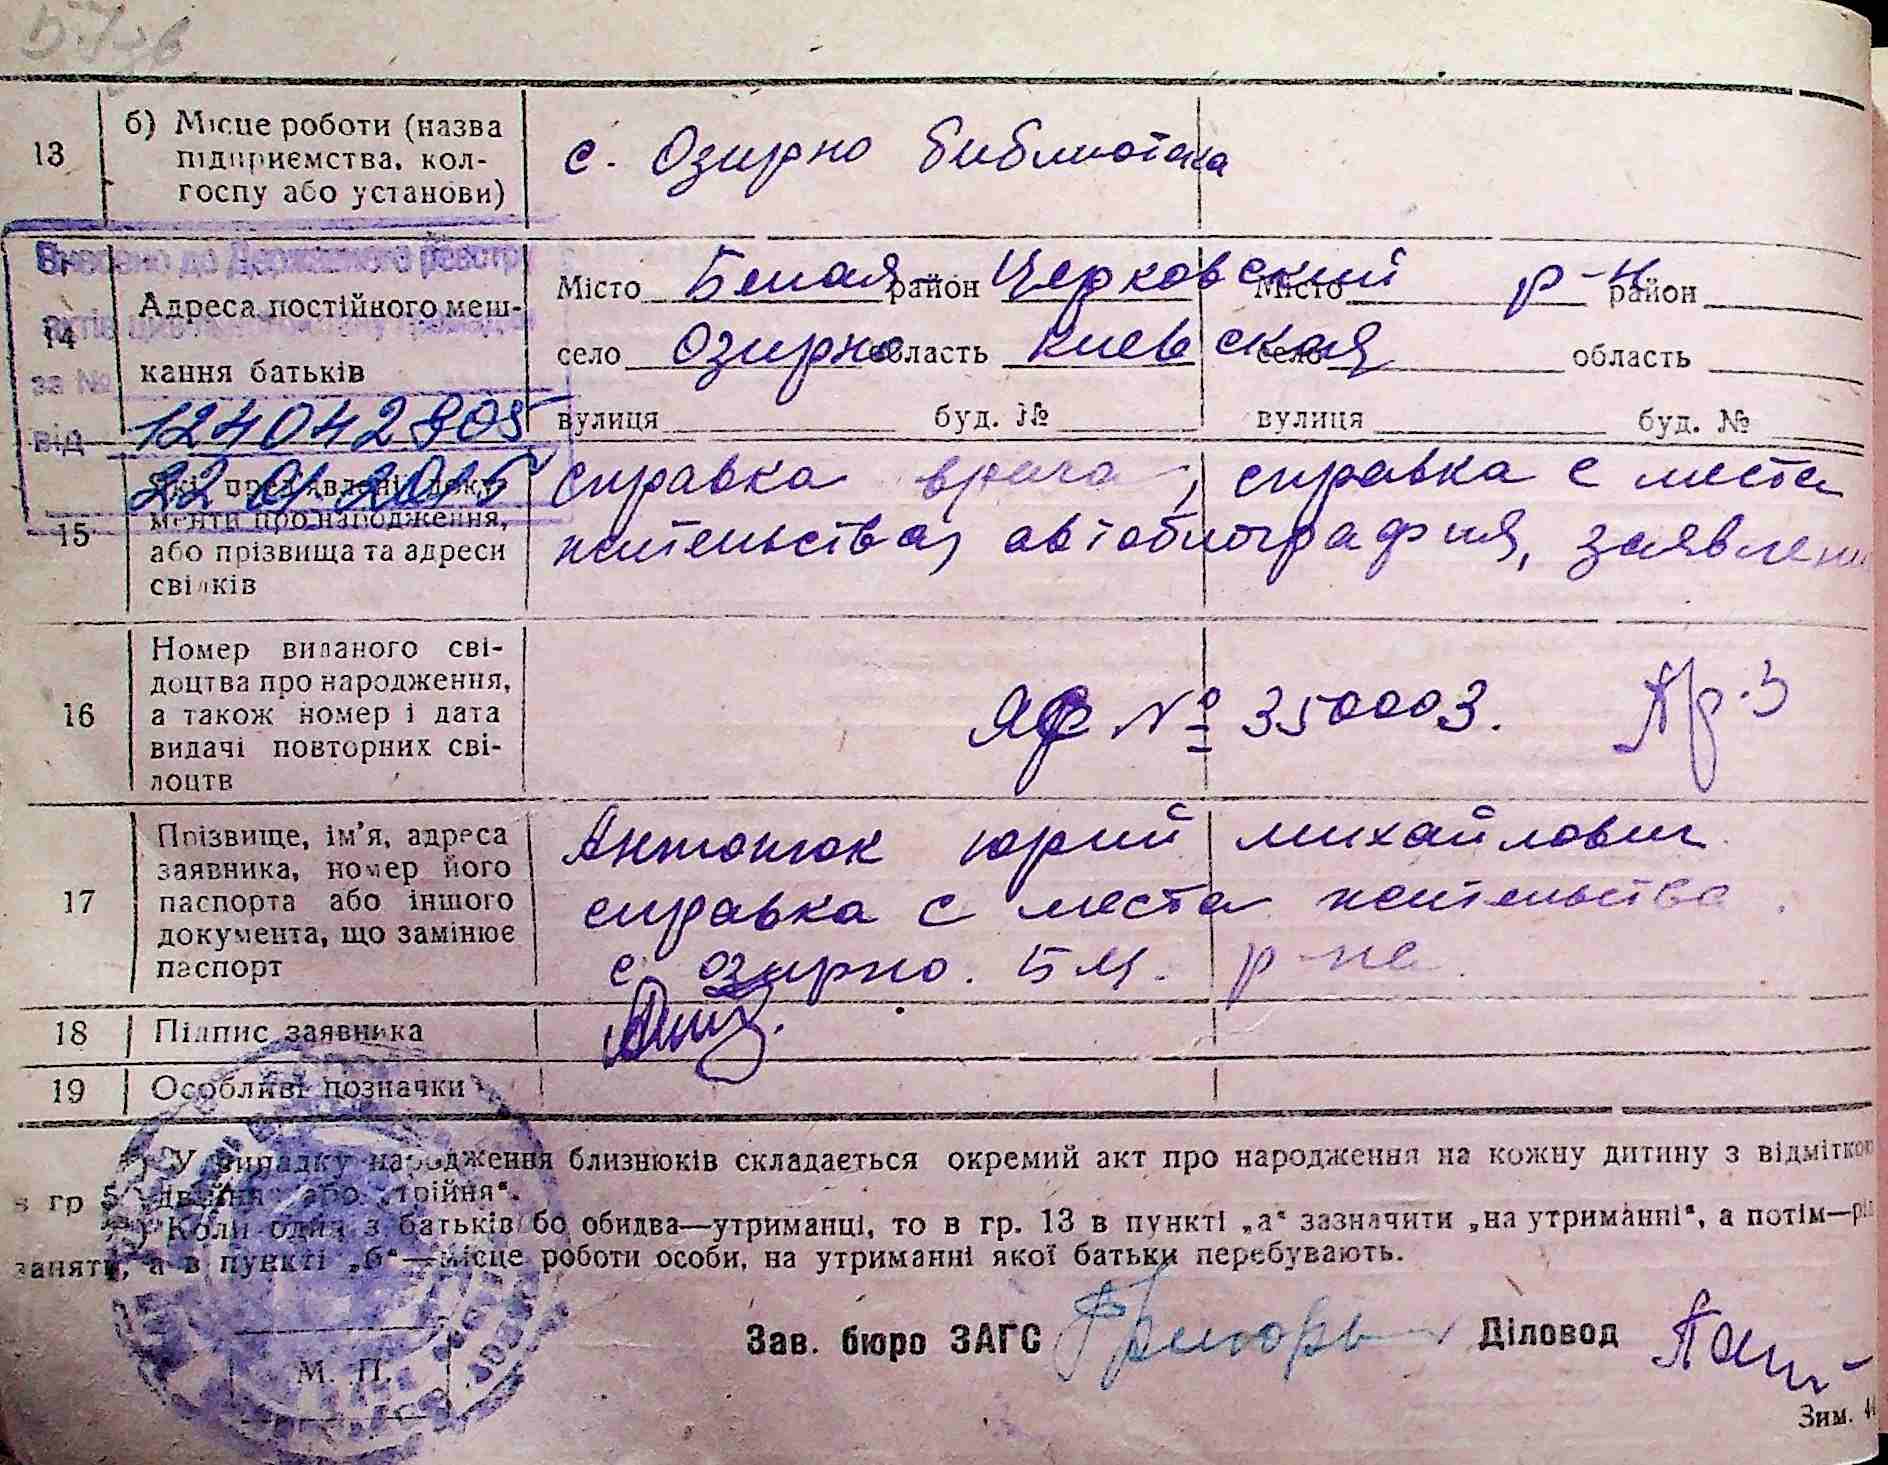 13
б) Місце роботи (назва
підприємства, кол-
госпу або установи)
с. Озирно библиотека
Внесено до Державного реєстру
за №
124042905
від 22 01 2015
14
Адреса постійного меш-
кання батьків
Місто Белая район Церковский Місто р-н район
село Озирно область Киевская село область
вулиця буд. № вулиця буд. №
15
Які пред'явлені доку-
менти про народження,
або прізвища та адреси
свідків
справка врача, справка с места
жительства, автобиография, заявлени
16
Номер виданого сві-
доцтва про народження,
а також номер і дата
видачі повторних сві-
доцтв
ЯФ № 350003.
17
Прізвище, ім'я, адреса
заявника, номер його
паспорта або іншого
документа, що замінює
паспорт
Антонюк Юрий Михайлович
справка с места жительства.
с. Озирно. БЦ. р-на.
18
Підпис заявника
19
Особливі позначки
*) У випадку народження близнюків складається окремий акт про народження на кожну дитину з відміткою
в гр 5 „двійня“ або „трійня“.
*) Коли один з батьків бо обидва—утриманці, то в гр. 13 в пункті „а“ зазначити „на утриманні“, а потім—рід
заняття, а в пункті „б“—місце роботи особи, на утриманні якої батьки перебувають.
Зав. бюро ЗАГС Діловод
М. П.
Зим. 44